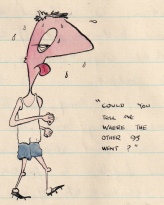 "COULD YOU
TELL ME
WHERE THE
OTHER 95
WENT?"